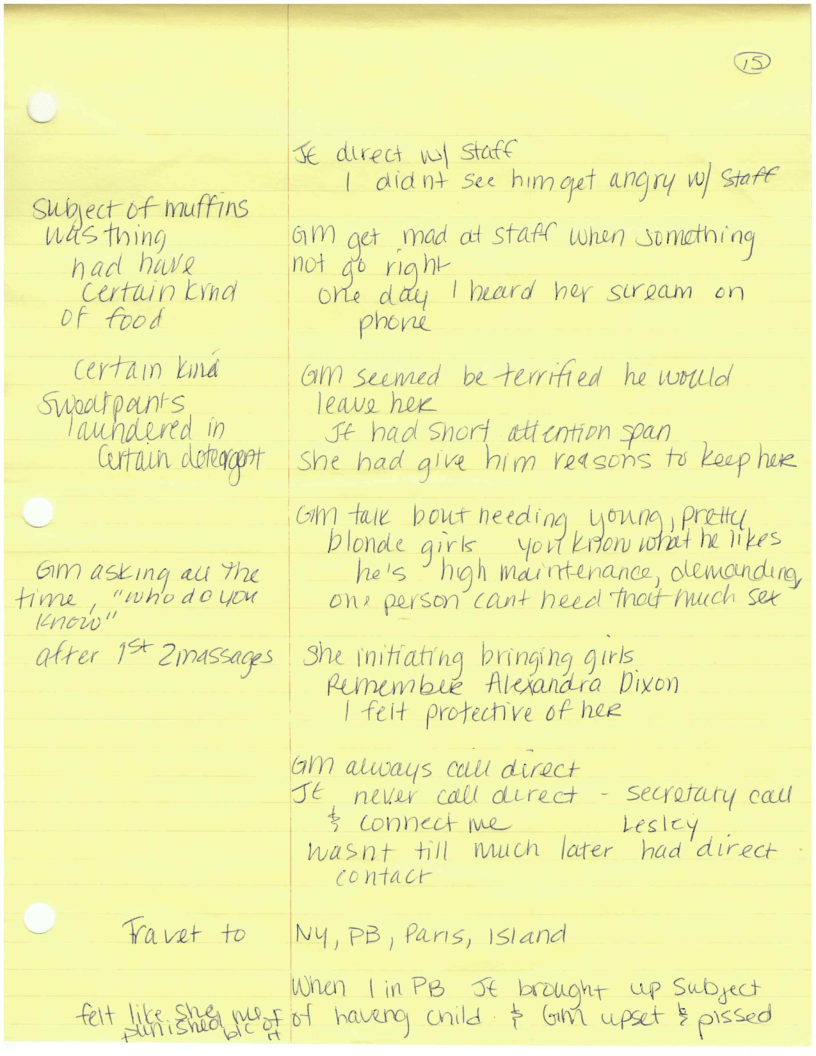 15
JE direct w/ staff
I didnt see him get angry w/ staff
Subject of muffins
was thing
had have
certain kind
of food
GM get mad at staff when something
not go right
one day I heard her scream on
phone
certain kind
sweatpants
laundered in
certain detergent
GM seemed be terrified he would
leave her
JE had short attention span
she had give him reasons to keep her
GM talk bout needing young, pretty
blonde girls you know what he likes
he's high maintenance, demanding,
one person cant need that much sex
GM asking all the
time, "who do you
know"
after 1st 2 massages
she initiating bringing girls
Remember Alexandra Dixon
I felt protective of her
GM always call direct
JE never call direct - secretary call
& connect me Lesley
wasnt till much later had direct
contact
Travel to NY, PB, Paris, Island
When I in PB JE brought up subject
of having child & GM upset & pissed
felt like she
punished b/c of
it